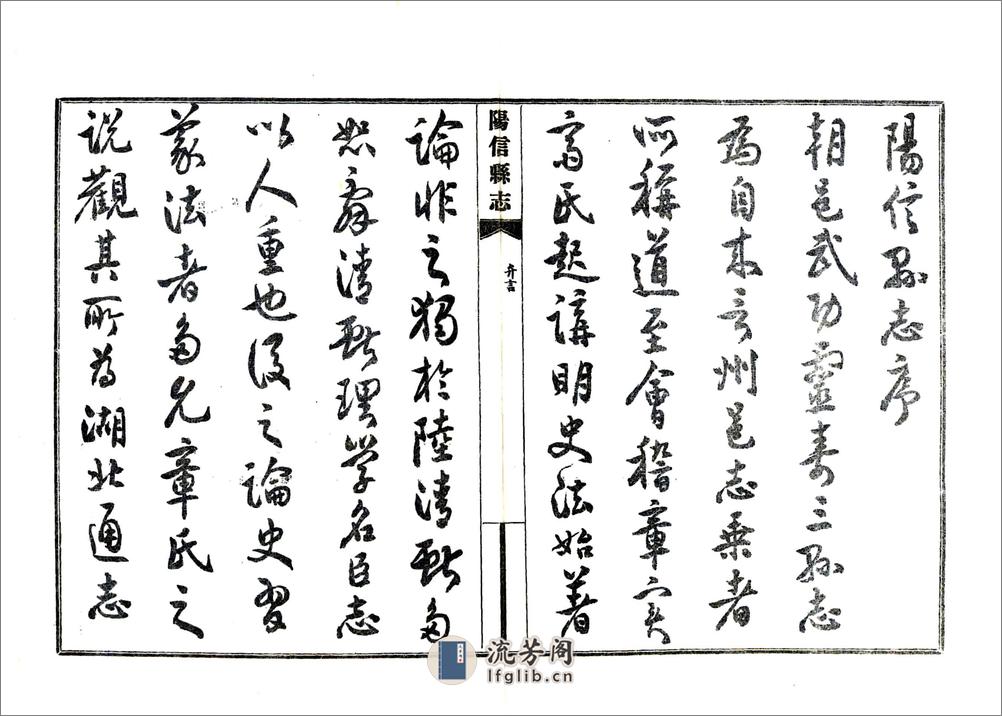 陽信縣志序
朝邑武功靈壽三縣志
為自來言州邑志乘者
所稱道至會稽章實
齋氏起講明史法始著
陽信縣志
弁言
論非之獨於陸清獻多
恕辭清獻理學名臣志
以人重也後之論史習
蒙法者多允章氏之
說觀其所為湖北通志
流芳阁
lfglib.cn